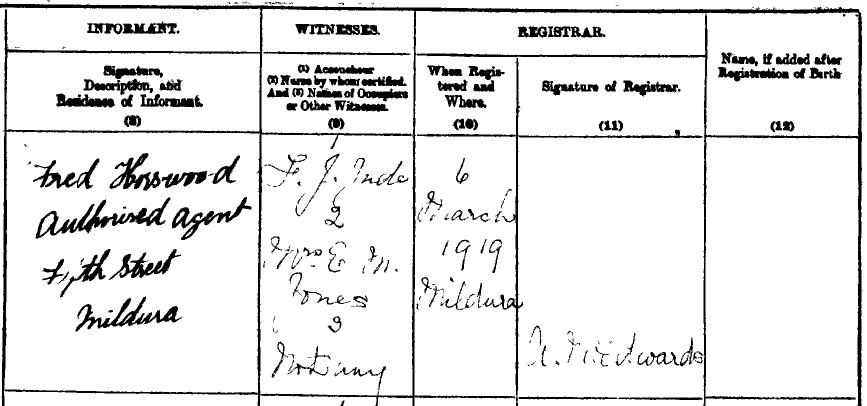 INFORMANT.
WITNESSES.
REGISTRAR.
Signature,
Description, and
Residence of Informant.
(8)
(1) Accoucheur
(2) Nurse by whom certified.
And (3) Names of Occupiers
or Other Witnesses.
(9)
When Regis-
tered and
Where.
(10)
Signature of Registrar.
(11)
Name, if added after
Registration of Birth
(12)
Fred Horswood
Authorised Agent
Fifth Street
Mildura
1
F. J.
2
Mrs E M.
Jones
3
Not any
6
March
1919
Mildura
Edwards